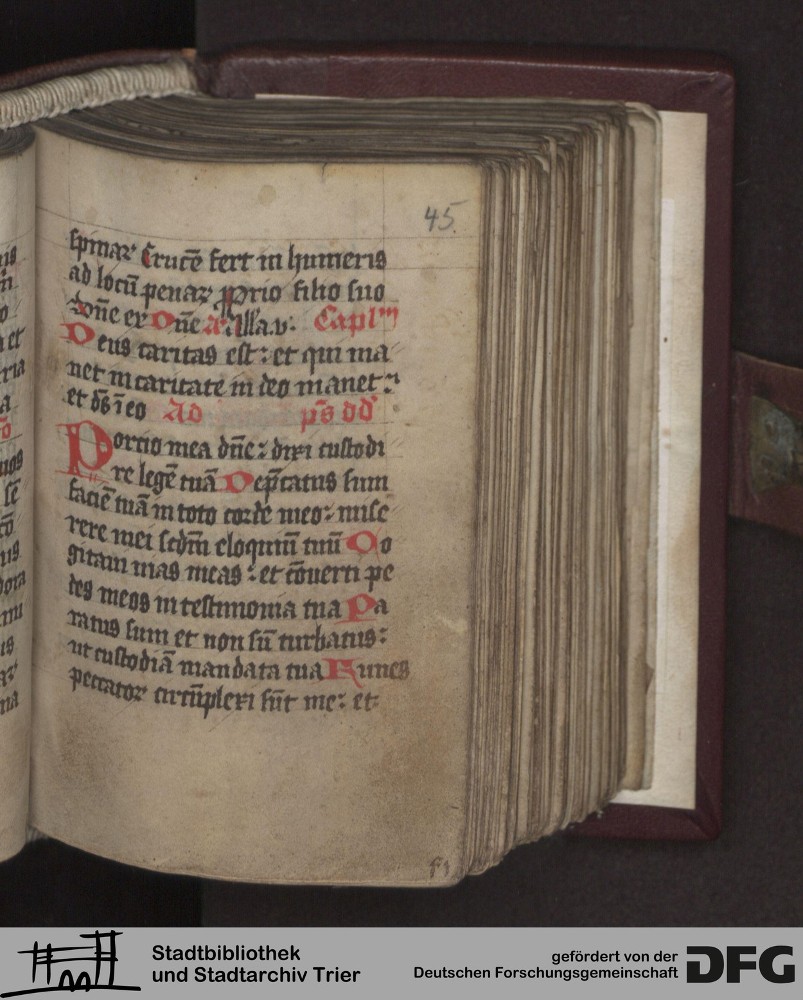 45.
spinaꝝ Crucē fert in humeris
ad locū penaꝝ ꝓprio filio suo
dn̄e ex Dn̄e Alla.v. Caplm
Deus caritas est: et qui ma
net in caritate in deo manet:
et ds̄ ī eo Ad ps̄ dd
Portio mea dn̄e: dixi custodi
re legē tuā Dep̄catus sum
faciē tuā in toto corde meo: mise
rere mei scdm̄ eloquiū tuū Co
gitaui uias meas: et cōuerti pe
des meos in testimonia tua Pa
ratus sum et non sū turbatus:
ut custodiā mandata tua Funes
peccatoꝝ circūplexi sūt me: et
Stadtbibliothek
und Stadtarchiv Trier
gefördert von der
Deutschen Forschungsgemeinschaft
DFG